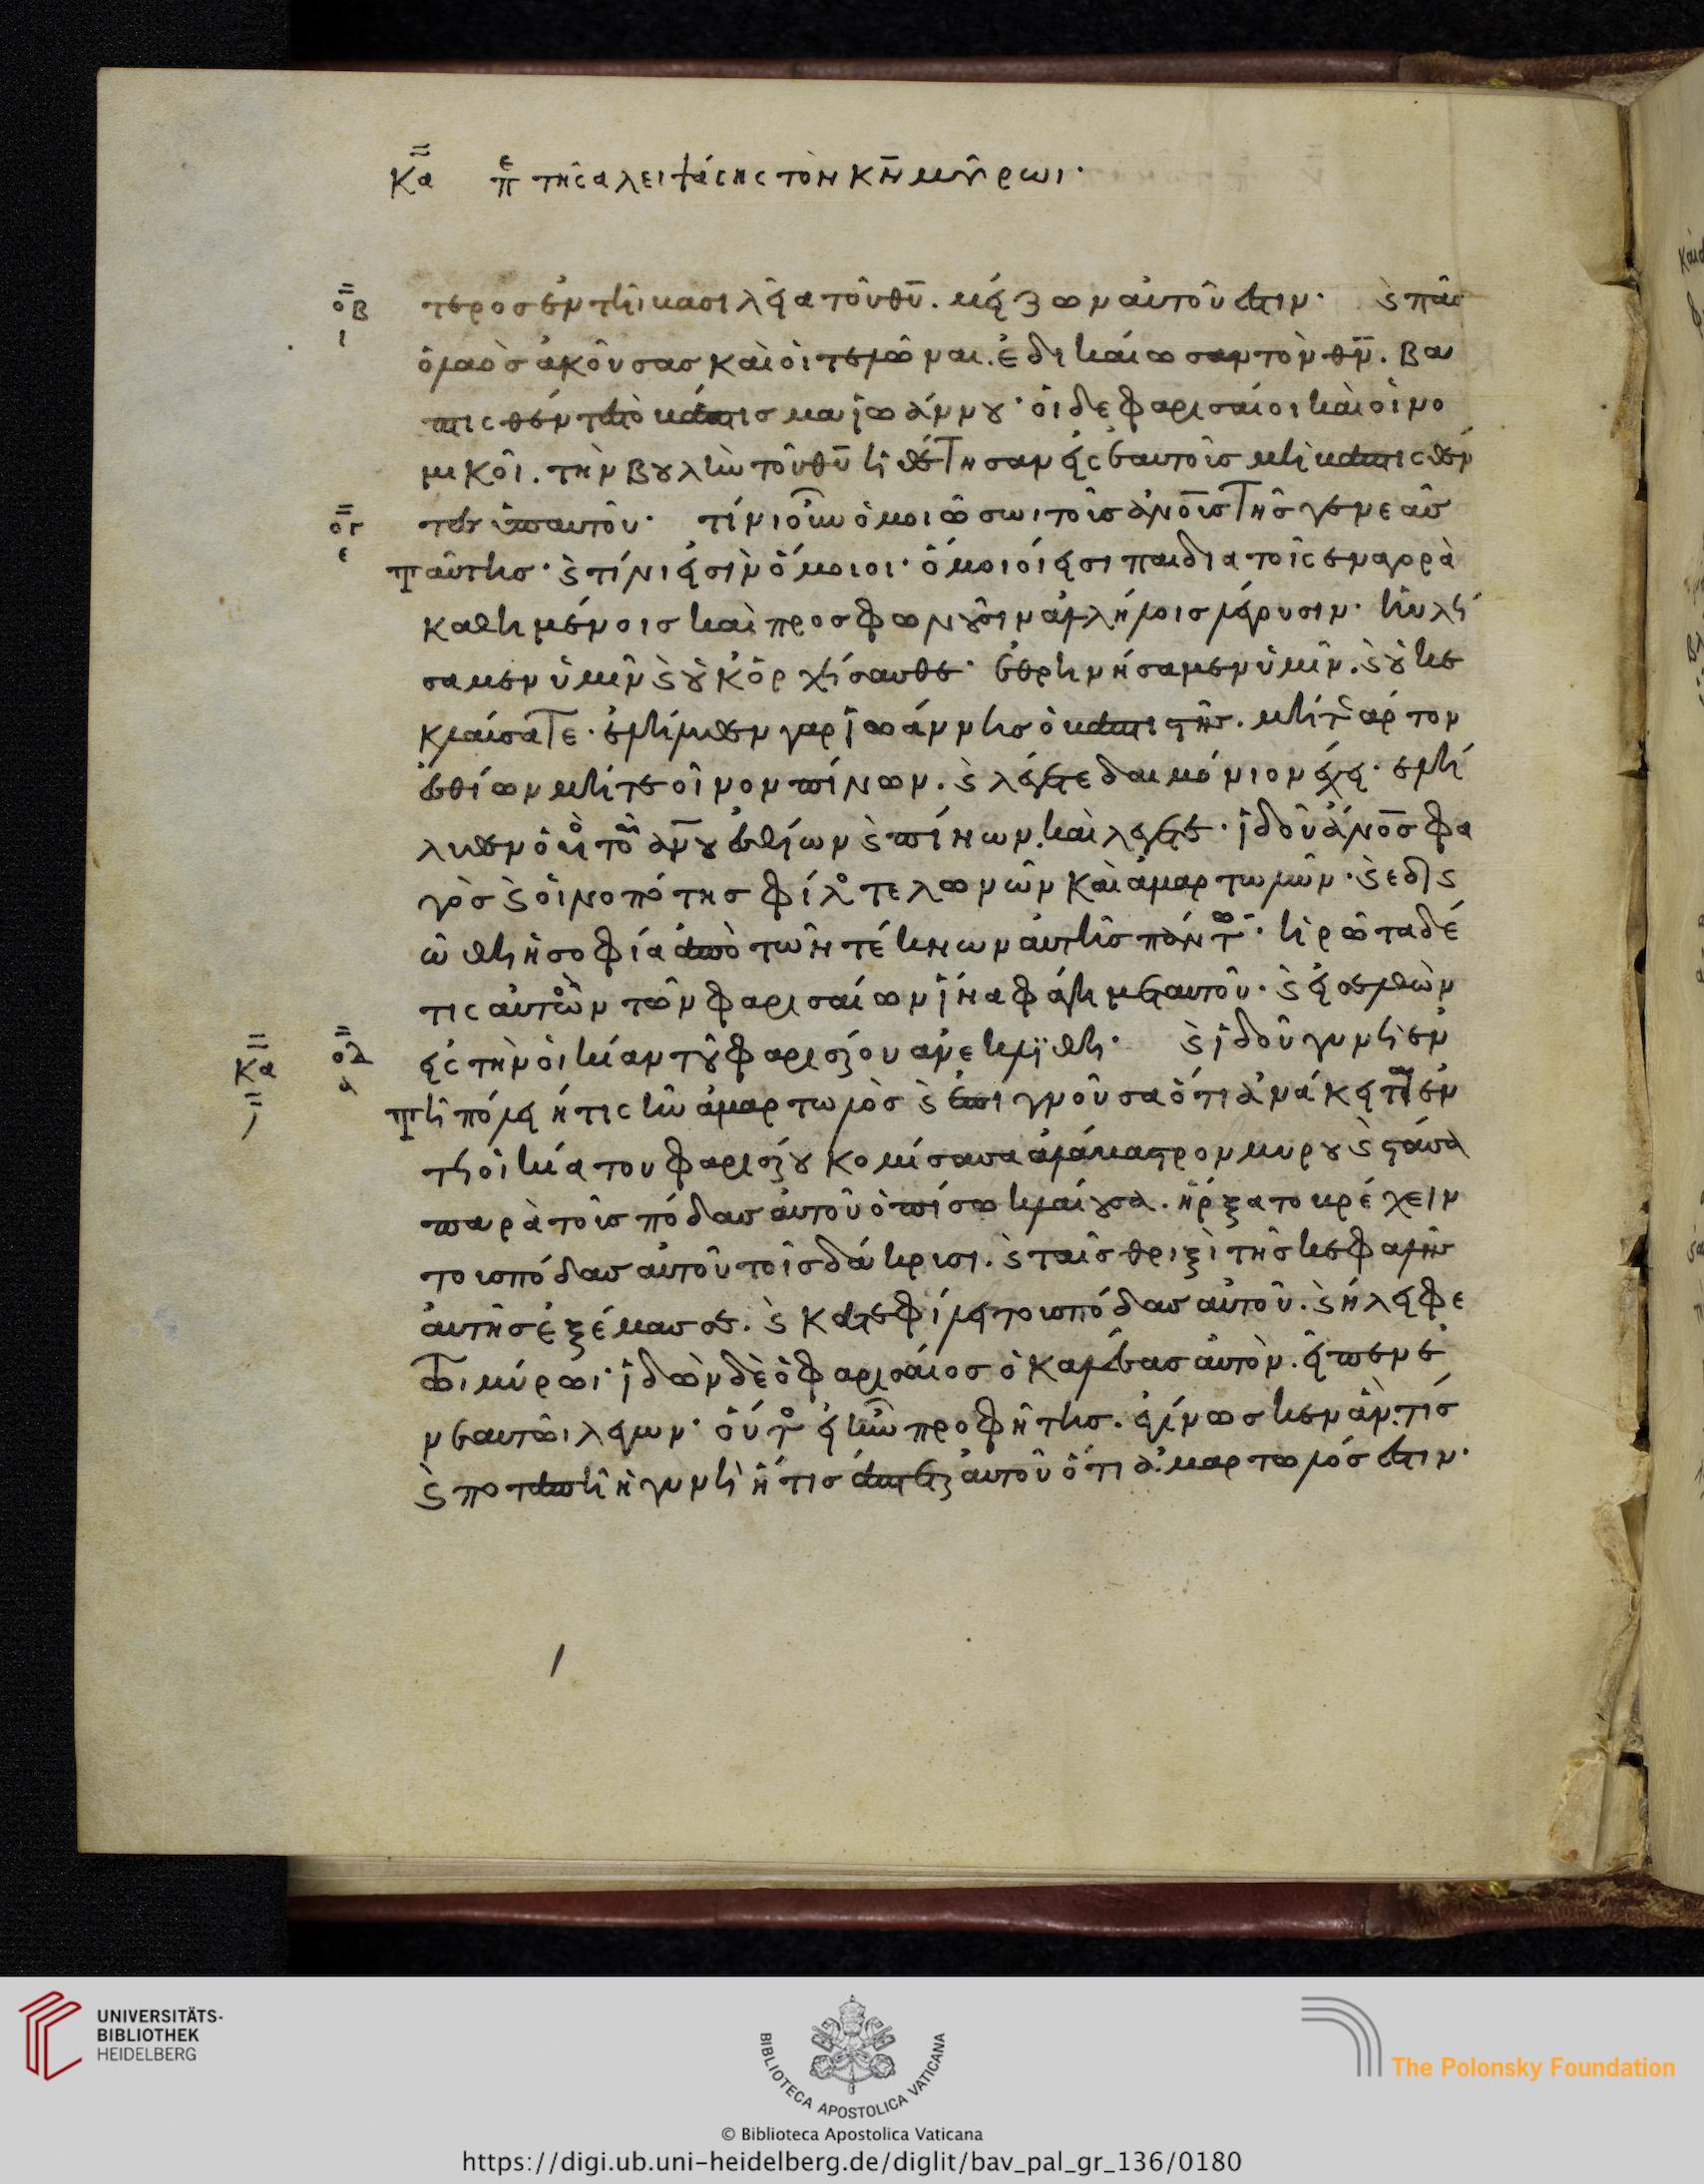 κα πε της αλειψάσης τὸν κν μύρωι·
οβ τερος ἐν τῆι βασιλεία τοῦ θυ. μείζων αὐτοῦ ἐστιν· ϗ πᾶς
ι ὁ λαὸς ἀκούσας καὶ οἱ τελῶναι. ἐδικαίωσαν τὸν θν. βα
πτισθέντες τὸ βάπτισμα ἰωάννου· οἱ δὲ φαρισαίοι καὶ οἱ νο
μικοὶ. τὴν βουλὴν τοῦ θυ ἠθέτησαν εἰς ἑαυτοῖς μὴ βαπτισθέν
ογ τες ὑπ αυτοῦ· τίνι οὖν ὁμοιώσωι τοῖς ἀνοῖς τῆς γενεᾶς
ε ταύτης· ϗ τίνι εἰσὶν ὅμοιοι· ὅμοιοί εἰσι παιδία τοῖς ἐν αγορὰ
καθημένοις καὶ προσφωνοῦσιν ἀλλήλοις λέγουσιν· ηὐλή
σαμεν ὑμῖν ϗ οὐκ ὀρχήσασθε· ἐθρηνήσαμεν ὑμῖν. ϗ οὐκ ε
κλαύσατε· ἐλήλυθεν γαρ ἰωάννης ὁ βαπτιστὴς. μήτε ἄρτον
ἐσθίων μήτε οἶνον πίνων. ϗ λέγετε δαιμόνιον ἔχει· ἐλή
λυθεν ὁ υἱὸς τοῦ ἀνου ἐσθίων ϗ πίνων. καὶ λέγετε· ἰδοὺ ἀνος φα
γὸς ϗ οἰνοπότης φίλος τελωνῶν καὶ ἁμαρτωλῶν· ϗ εδικαι
ώθη ἡ σοφία ἀπὸ τῶν τέκνων αὐτῆς πάντων· ἠρώτα δέ
τις αὐτὸν τῶν φαρισαίων ἵνα φάγη μετ αυτοῦ· ϗ εἰσελθὼν
κα οδ εἰς τὴν οἰκίαν τοῦ φαρισαίου ανεκλίθη· ϗ ἰδοὺ γυνὴ ἐν
α τῆ πόλει ἥτις ἦν ἁμαρτωλὸς ϗ ἐπιγνοῦσα ὅτι ἀνάκειται ἐν
τῆ οἰκία του φαρισαίου κομίσασα ἀλάβαστρον μυρου ϗ στάσα
παρὰ τοις πόδας αὐτοῦ ὀπίσω κλαίουσα. ἤρξατο βρέχειν
τοις πόδας αὐτοῦ τοῖς δάκρισι. ϗ ταῖς θριξὶ τῆς κεφαλῆς
ἀυτῆς ἐξέμασσε. ϗ κατεφίλει τοις πόδας αὐτοῦ. ϗ ἤλειφε
τῶι μύρωι· ἰδὼν δὲ ὁ φαρισαίος ὁ καλέσας αὐτὸν. εἶπεν ἐ
ν εαυτῶι λεγων· οὗτος εἰ ἦν προφήτης. ἐγίνωσκεν ἂν. τίς
ϗ ποταπὴ ἡ γυνὴ ἥτις ἅπτεται αὐτοῦ ὅτι ἁμαρτωλός ἐστιν·
UNIVERSITÄTS-
BIBLIOTHEK
HEIDELBERG
BIBLIOTECA APOSTOLICA VATICANA
The Polonsky Foundation
© Biblioteca Apostolica Vaticana
https://digi.ub.uni-heidelberg.de/diglit/bav_pal_gr_136/0180